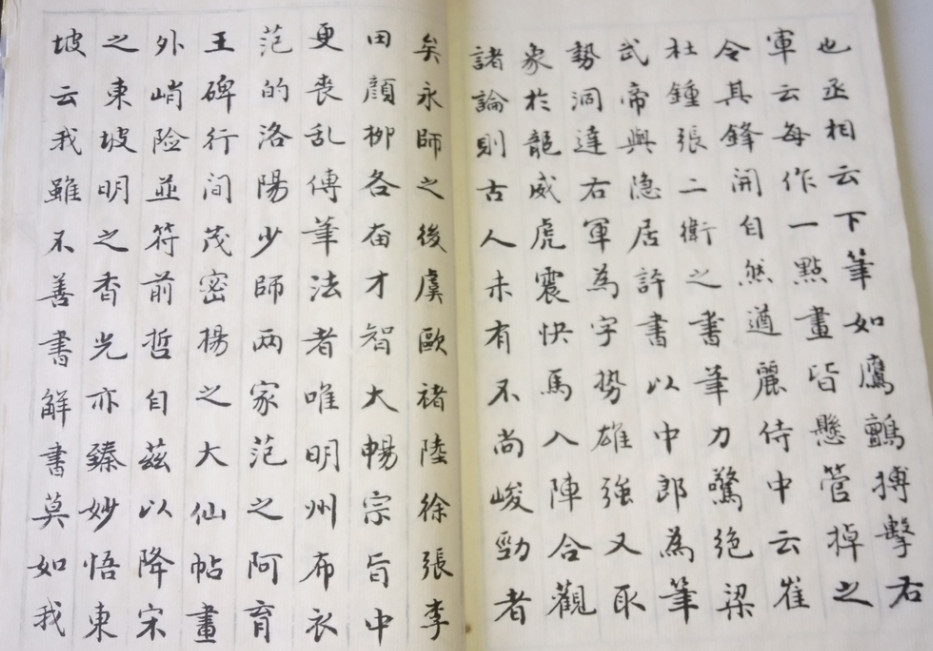 也丞相云下筆如鷹鸇搏擊右
軍云每作一點畫皆懸管掉之
令其鋒開自然遒麗侍中云崔
杜鍾張二衛之書筆力驚絶梁
武帝與隐居評書以中郎為筆
勢洞達右軍為字勢雄強又取
象於龍威虎震快馬入陣合觀
諸論則古人未有不尚峻勁者
矣永師之後虞歐褚陸徐張李
田顔柳各奋才智大暢宗旨中
更喪乱傳筆法者唯明州布衣
范的洛陽少師两家范之阿育
王碑行间茂密楊之大仙帖畫
外峭险並符前哲自茲以降宋
之東坡明之香光亦臻妙悟東
坡云我雖不善書解書莫如我